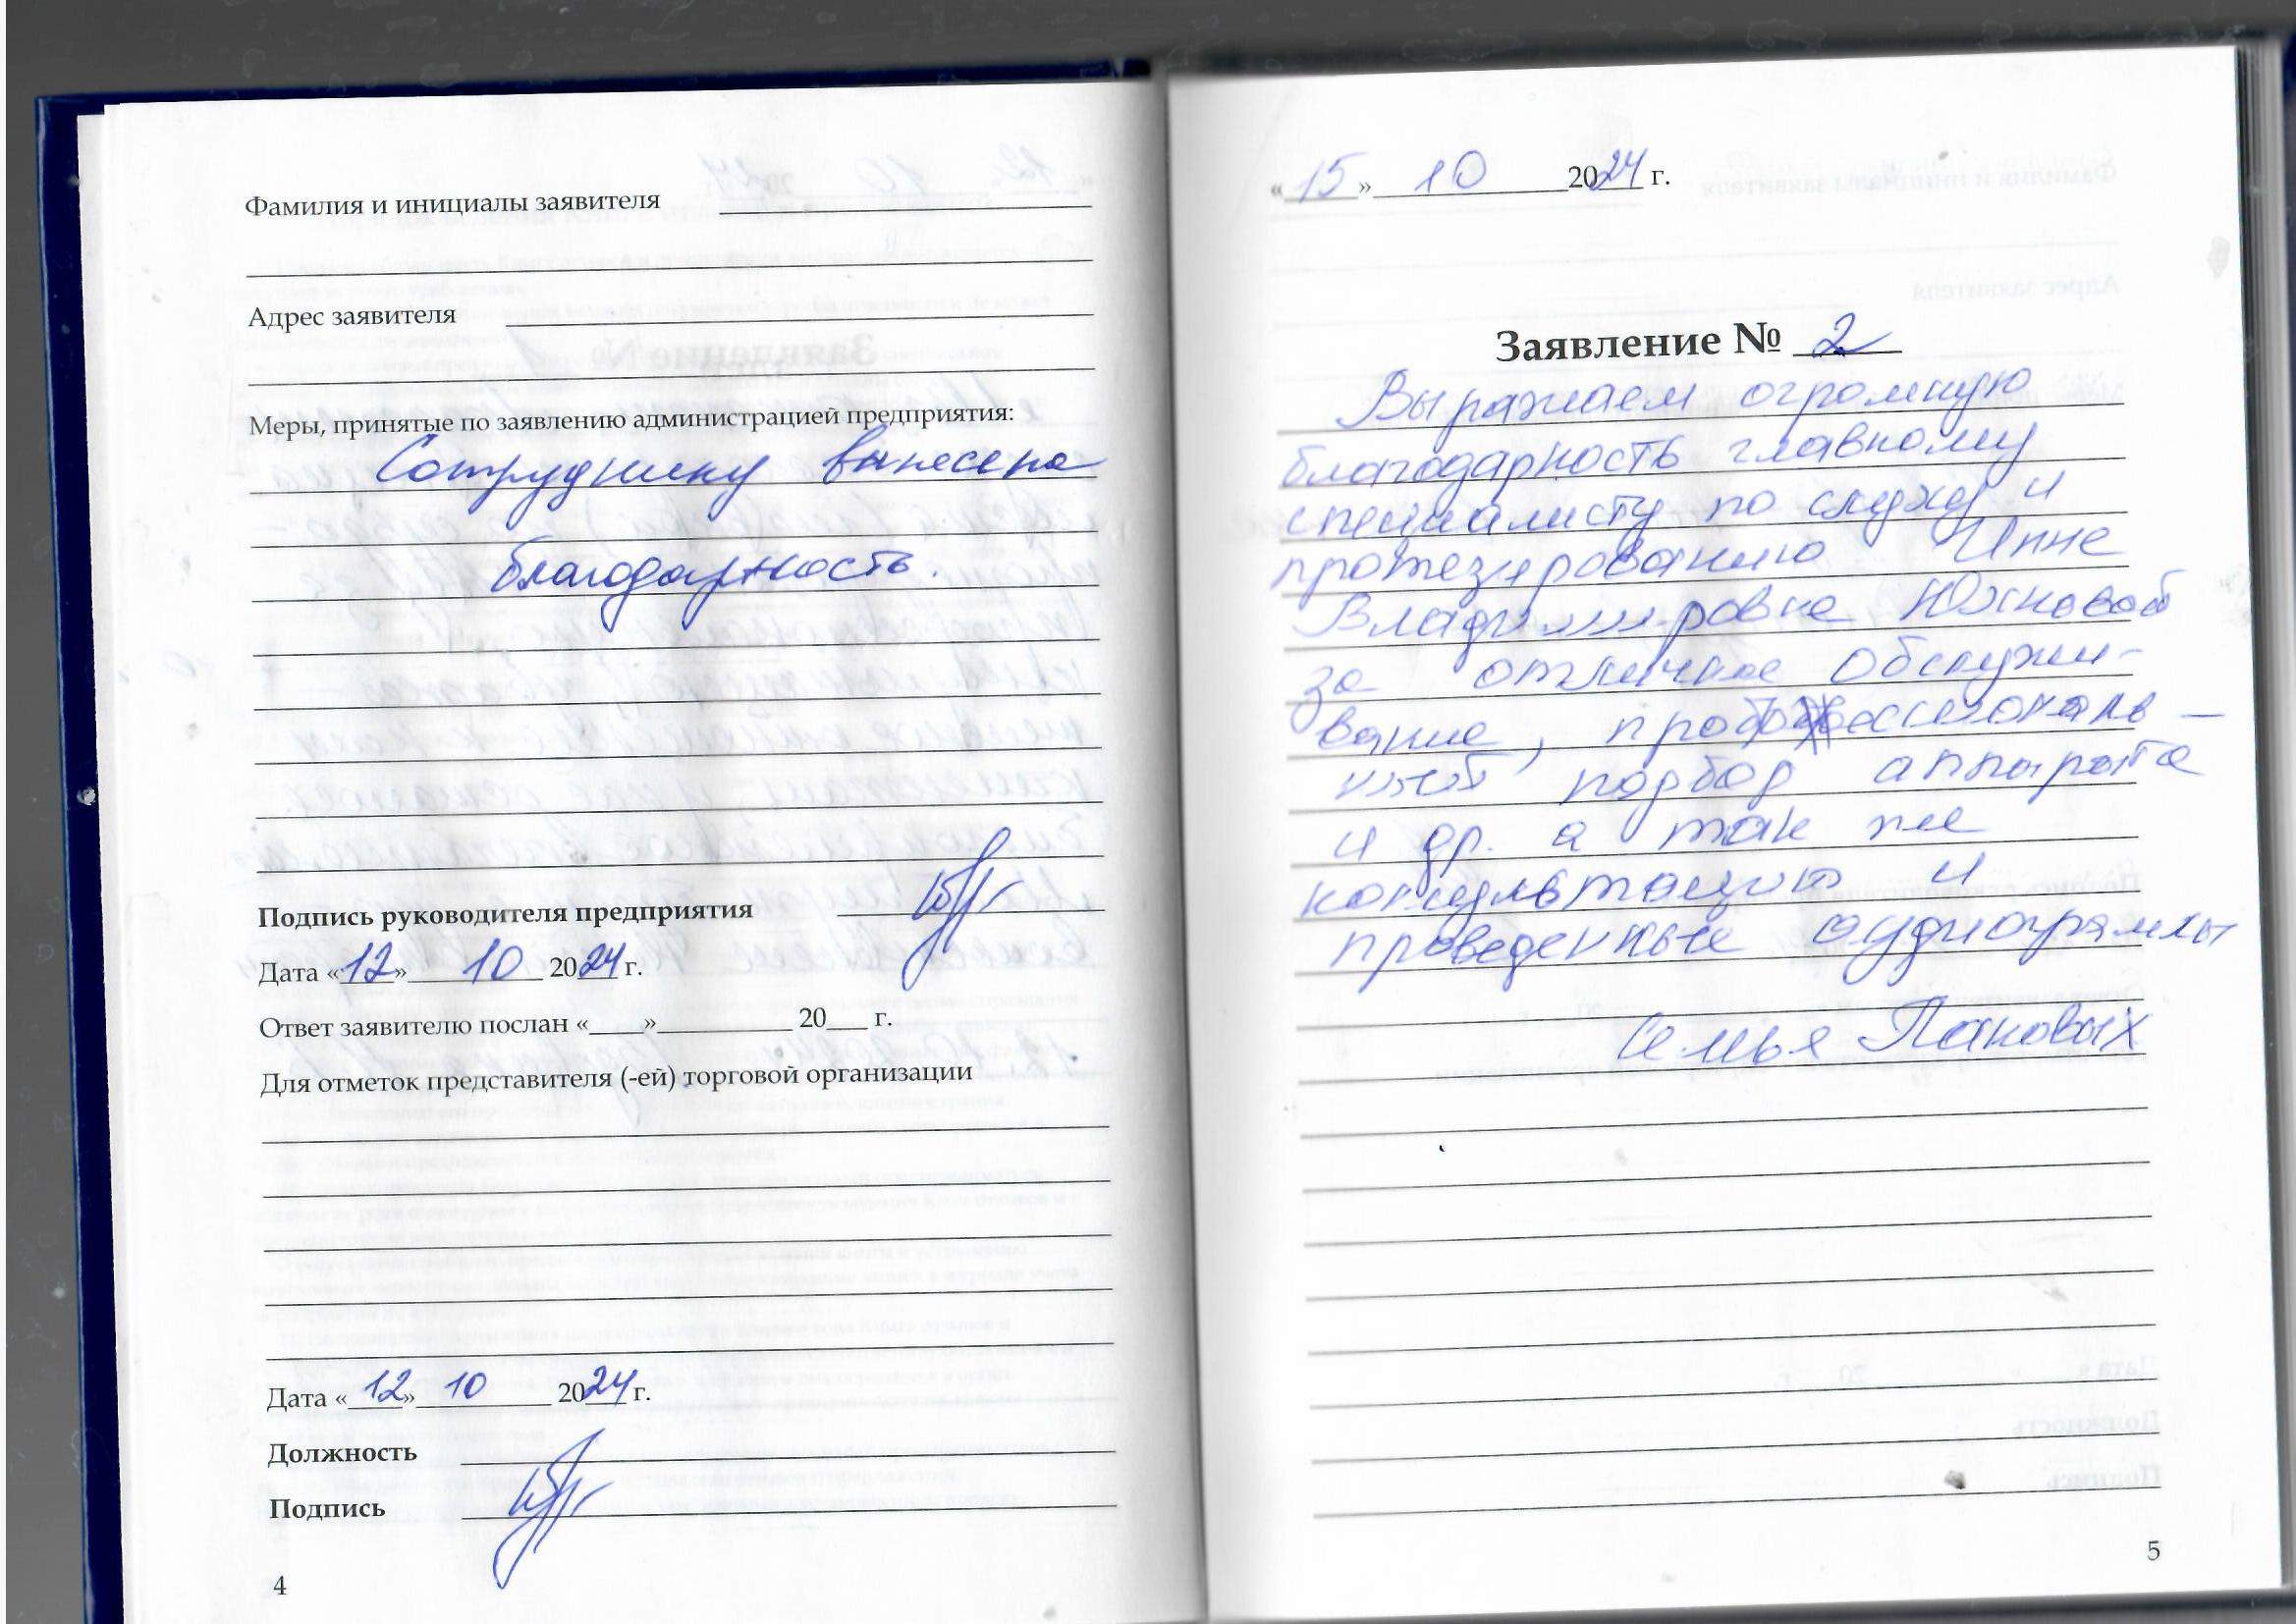 Фамилия и инициалы заявителя
Адрес заявителя
Меры, принятые по заявлению администрацией предприятия:
Сотруднику вынесена
благодарность.
Подпись руководителя предприятия
Дата «12» 10 2024 г.
Ответ заявителю послан «____»__________ 20___ г.
Для отметок представителя (-ей) торговой организации
Дата «12» 10 2024 г.
Должность
Подпись
4
«15» 10 2024 г.
Заявление № 2
Выражаем огромную
благодарность главному
специалисту по слуху и
протезированию Инне
Владимировне Южновой
за отличное обслужи-
вание, профессиональ-
ный подбор аппарата
и др. а так же
консультацию и
проведенные аудиограммы
Семья Пановых
5